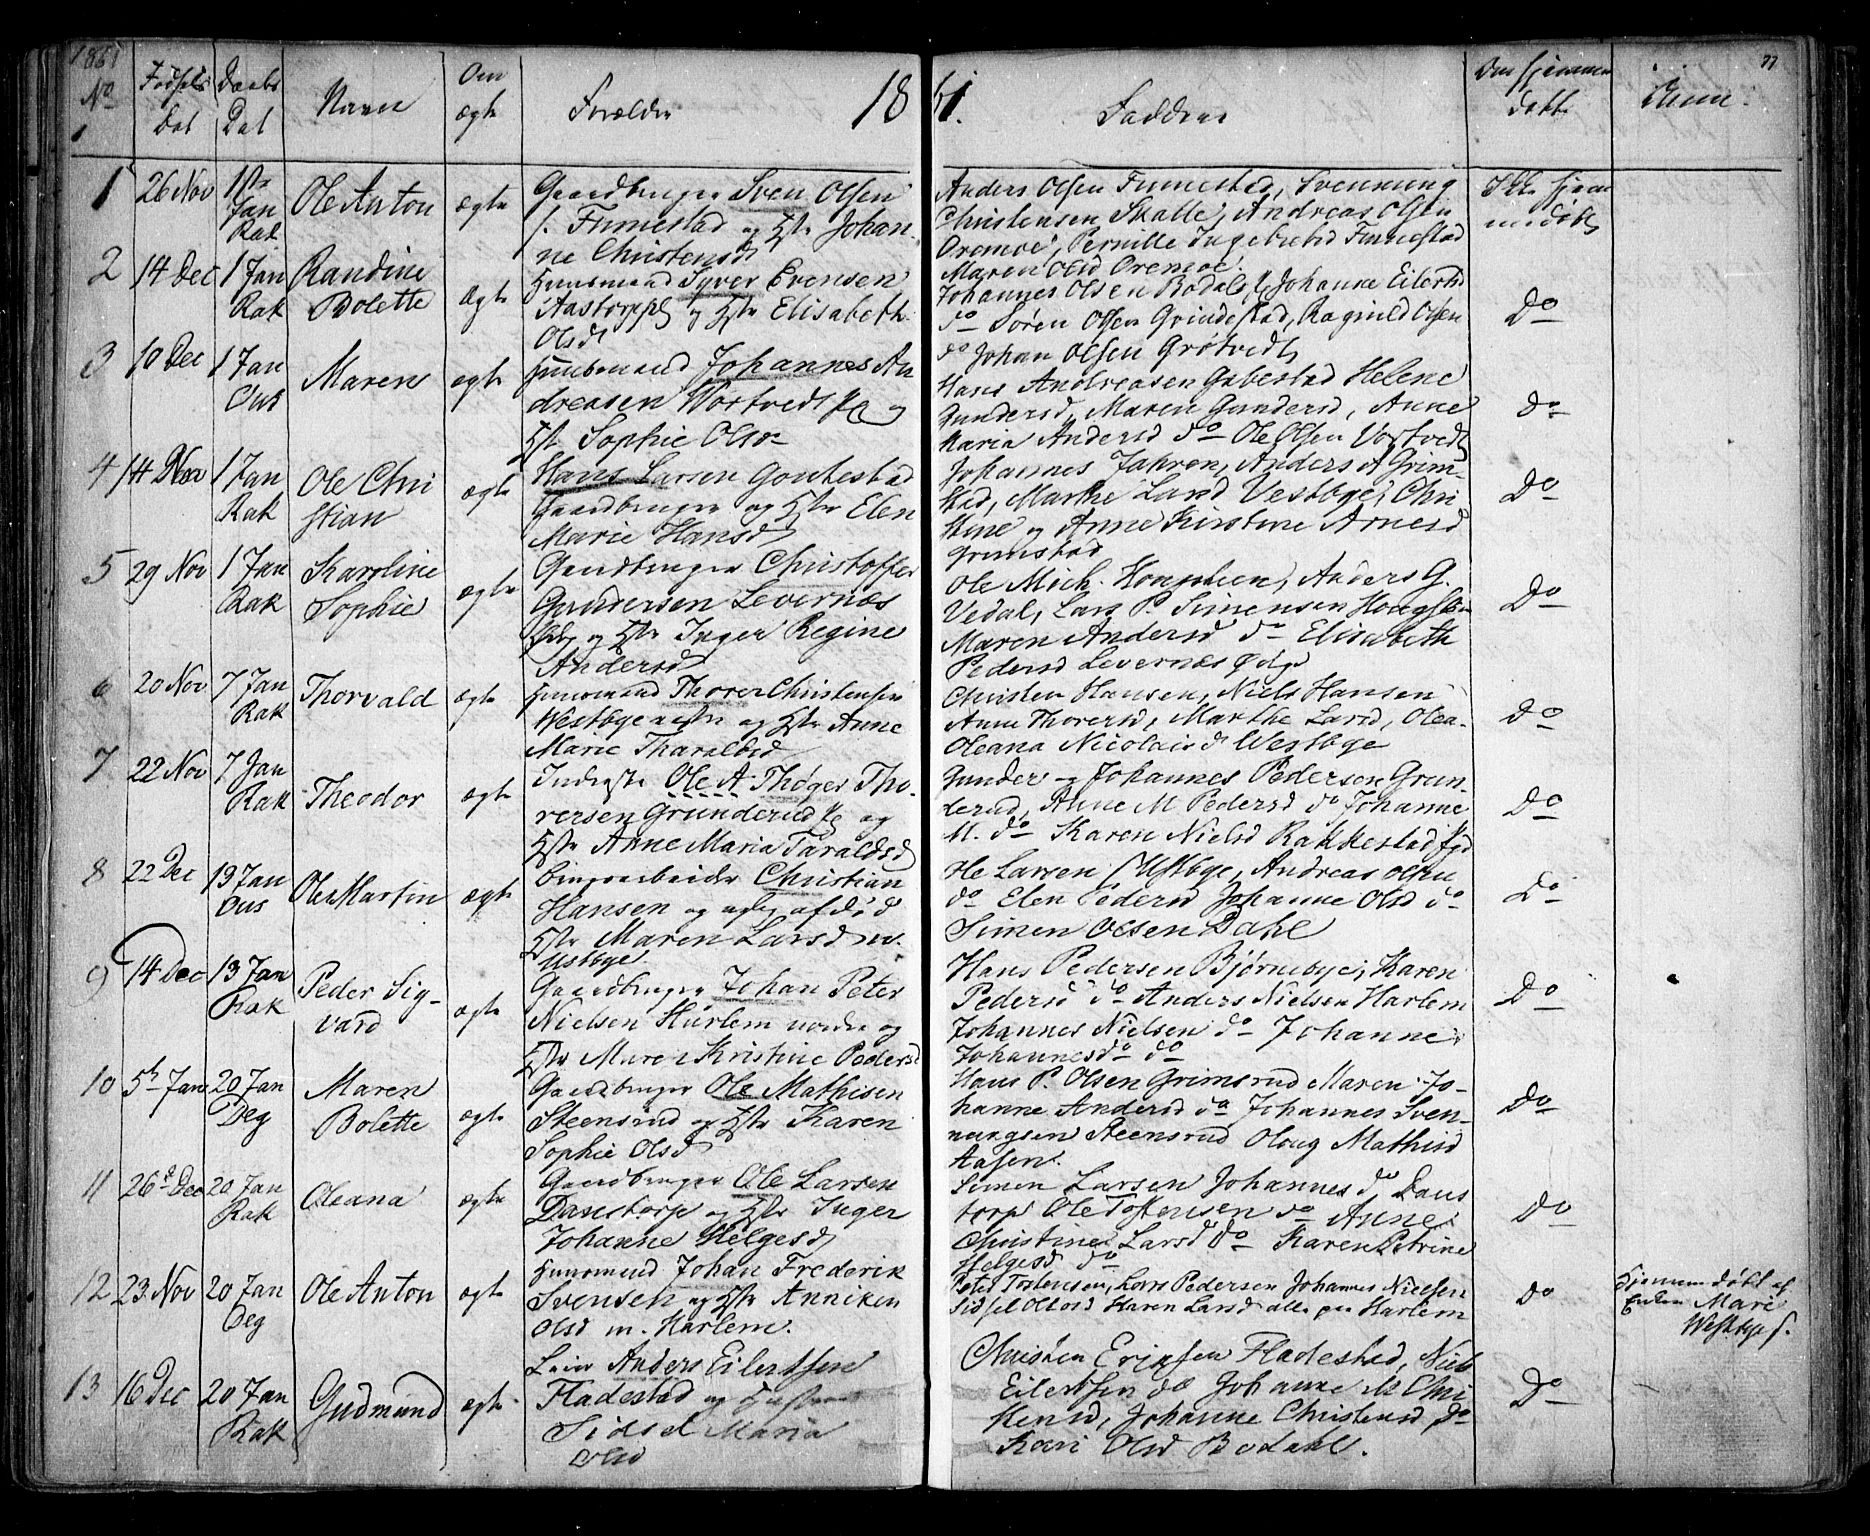 1861
No
Fødsels Dat
Daabs Dat
Navn
Om ægte
Forældre
1861.
Faddere
Om hjemmedøbt
Anm.
77
1 26 Nov 1ste Jan Rak Ole Anton ægte
Gaardbruger Sven Olsen
Finnestad og Hstr Johan-
ne Christensd
Anders Olsen Finnestad, Svenning
Christensen Skalle, Andreas Olsen
Oremoe, Pernille Ingebretsd Finnestad
Maren Olsd Oremoe.
Ikke hjem
medøbt
2 14 Dec 1 Jan Rak Randine Bolette ægte
Huusmand Syver Evensen
Aastorp og Hstr Elisabeth
Olsd
Johannes Olsen Bodal, Johanne Eilertsd
do Søren Olsen Grindestad, Ragnild Olsen
do Johan Olsen Grøtvedt
Do
3 10 Dec 1 Jan Ous Maren ægte
Huusmand Johannes An
dreasen Wortvedt og
Hstr Sophie Olsd
Hans Andreasen Gabestad Helene
Gundersd, Maren Gundersd, Anne
Maria Andersd do Ole Olsen Vortvedt
Do
4 14 Nov 1 Jan Rak Ole Chri stian ægte
Hans Larsen Gautestad
Gaardbruger og Hstr Elen
Marie Hansd
Johannes Jahren, Anders A Grim-
stad, Marthe Larsd Vestbye, Chri
stine og Anne Kirstine Arnesd
Grimstad
Do
5 29 Nov 1 Jan Rak Karoline Sophie ægte
Gaardbruger Christoffer
Gundersen Levernæs
og Hstr Inger Regine
Andersd
Ole Mich. Anders G.
Vedal, Lars P. Simensen
Maren Andersd do Elisabeth
Pedersd Levernæs
Do
6 20 Nov 7 Jan Rak Thorvald ægte
Huusmand Thorer Christensen
Westbye og Hstr Anne
Marie Tharaldsd
Christen Hansen, Niels Hansen
Anne Thorersd, Marthe Larsd, Olea-
Oleana Nicolaisd Westbye
Do
7 22 Nov 7 Jan Rak Theodor ægte
Inderste Ole A. Thøger Tho-
rersen Grunderud og
Hstr Anne Maria Taraldsd
Gunder og Johannes Pedersen Grun-
derud, Anne M Pedersd do Johanne
M. do Karen Nielsd Rakkestad
Do
8 22 Dec 13 Jan Ous Ole Martin ægte
Christian
Hansen og afdød
Hstr Maren Larsd
Ustbye
Ole Larsen Ustbye, Andreas Olsen
do Elen Pedersd Johanne Olsd do
Simen Olsen Dahl
Do
9 14 Dec 13 Jan Rak Peder Sig- vard ægte
Gaardbruger Johan Peter
Nielsen Harlem nordre og
Hstr Maren Kristine Pedersd
Hans Pedersen Bjørnebye, Karen
Pedersd do Anders Nielsen Harlem
Johannes Nielsen do Johanne
Johannesd do
Do
10 5te Jan 20 Jan Deg Maren Bolette ægte
Gaardbruger Ole Mathisen
Steensrud og Hstr Karen
Sophie Olsd
Hans P. Olsen Grimsrud Maren Jo-
hanne Andersd do Johannes Sven-
ningsen Steensrud Oloug Mathisd
Aasen.
Do
11 26de Dec 20 Jan Rak Oleana ægte
Gaardbruger Ole Larsen
Danstorp og Hstr Inger
Johanne Helgesd
Simen Larsen Johannes do Dans
torp Ole Tostensen do Anne
Christine Larsd do Karen Petrine
Helgesd do
Do
12 23 Nov 20 Jan Deg Ole Anton ægte
Huusmand Johan Frederik
Svensen og Hstr Anniken
Olsd m. Harlem.
Peter Tostensen, Lars Pedersen Johannes Nielsen
Sidsel Karen Larsd alle paa Harlem
Do
Hjemmedøbt af
Enken Mari
Westbye
13 16 Dec 20 Jan Rak Gudmund ægte
Anders Eilertsen
Fladestad og Hustru
Sidsel Maria
Olsd
Christen Eriksen Fladestad, Niels
Eilertsen do Johanne M Chri
stensd, Johanne Christensd do
Kari Olsd Bodahl.
Do